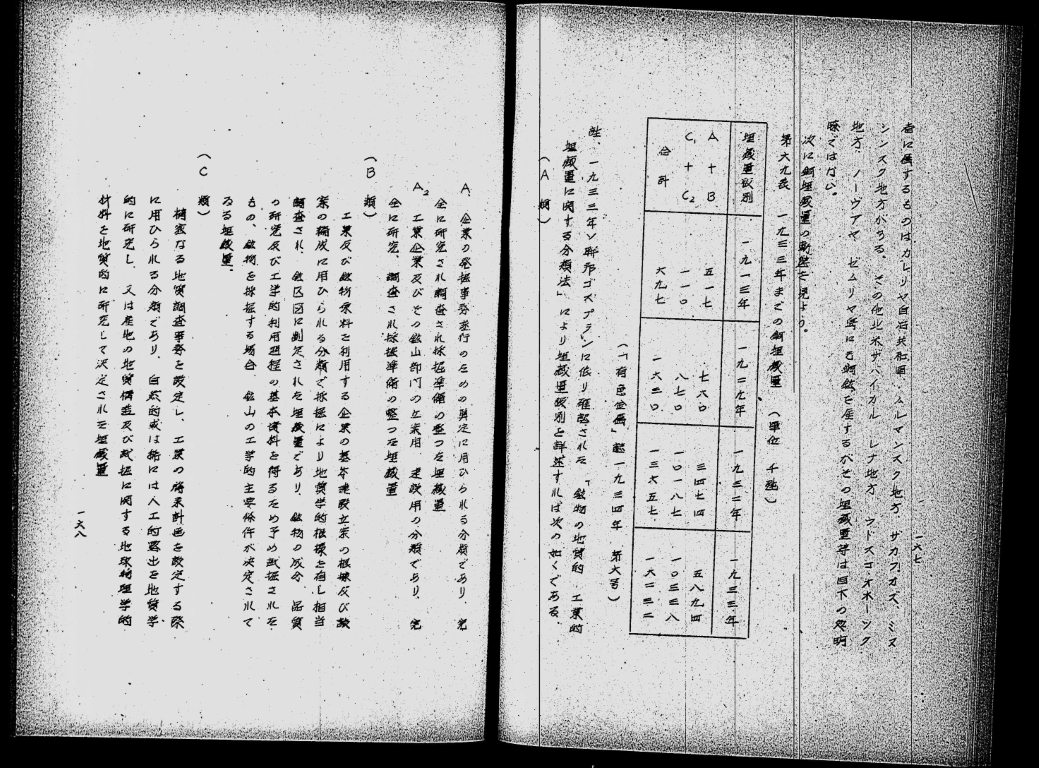 一六七
者に属するものはカレリヤ自治共和国、ムルマンスク地方、サカフカズ、ミヌ
シンスク地方がある。その他北米ザバイカル、レナ地方、ウドスコオホーツク
地方、ノーウアヤ、ゼムリヤ等にも銅鉱を産するがその埋蔵量等は目下の処明
瞭ではない。
次に銅埋蔵量の動態を見よう。
第六九表 一九三三年までの銅埋蔵量 (単位 千瓲)
埋蔵量区別 一九一三年 一九二九年 一九三二年 一九三三年
A+B 五一七 七六〇 三四七四 五八九四
C₁+C₂ 一一〇 八七〇 一〇一八七 一〇三三八
合計 六九七 一六三〇 一三六五七 一六二三二
(「有色金属」誌一九三四年 第六号)
註、一九三三年ソ聯邦ゴスプランに依り確認された「鉱物の地質的、工業的
埋蔵量に関する分類法」により埋蔵量区別を詳述すれば次の如くである
(A類)
A₁ 企業の発掘事務遂行のための算定に用ひられる分類であり、完
全に研究され調査され採掘準備の整つた埋蔵量
A₂ 工業企業及びその鉱山部門の立案用、建設用の分類であり、完
全に研究、調査され採掘準備の整つた埋蔵量
(B類)
工業及び鉱物原料を利用する企業の基本建設立案の根拠及び設
案の編成に用ひられる分類で採掘により地質学的根拠を有し相当
調査され、鉱区図に劃定された埋蔵量であり、鉱物の成分、品質
の研究及び工学的利用過程の基本資料を得るため予め試掘された
もの、鉱物を採掘する場合、鉱山の工学的主要條件が決定されて
ゐる埋蔵量、
(C類)
精密なる地質調査事務を設定し、工業の将来計画を設定する際
に用ひられる分類であり、自然的或は稀には人工的露出を地質学
的に研究し、又は産地の地質構造及び試掘に関する地球物理学的
材料を地質的に研究して決定された埋蔵量
一六八